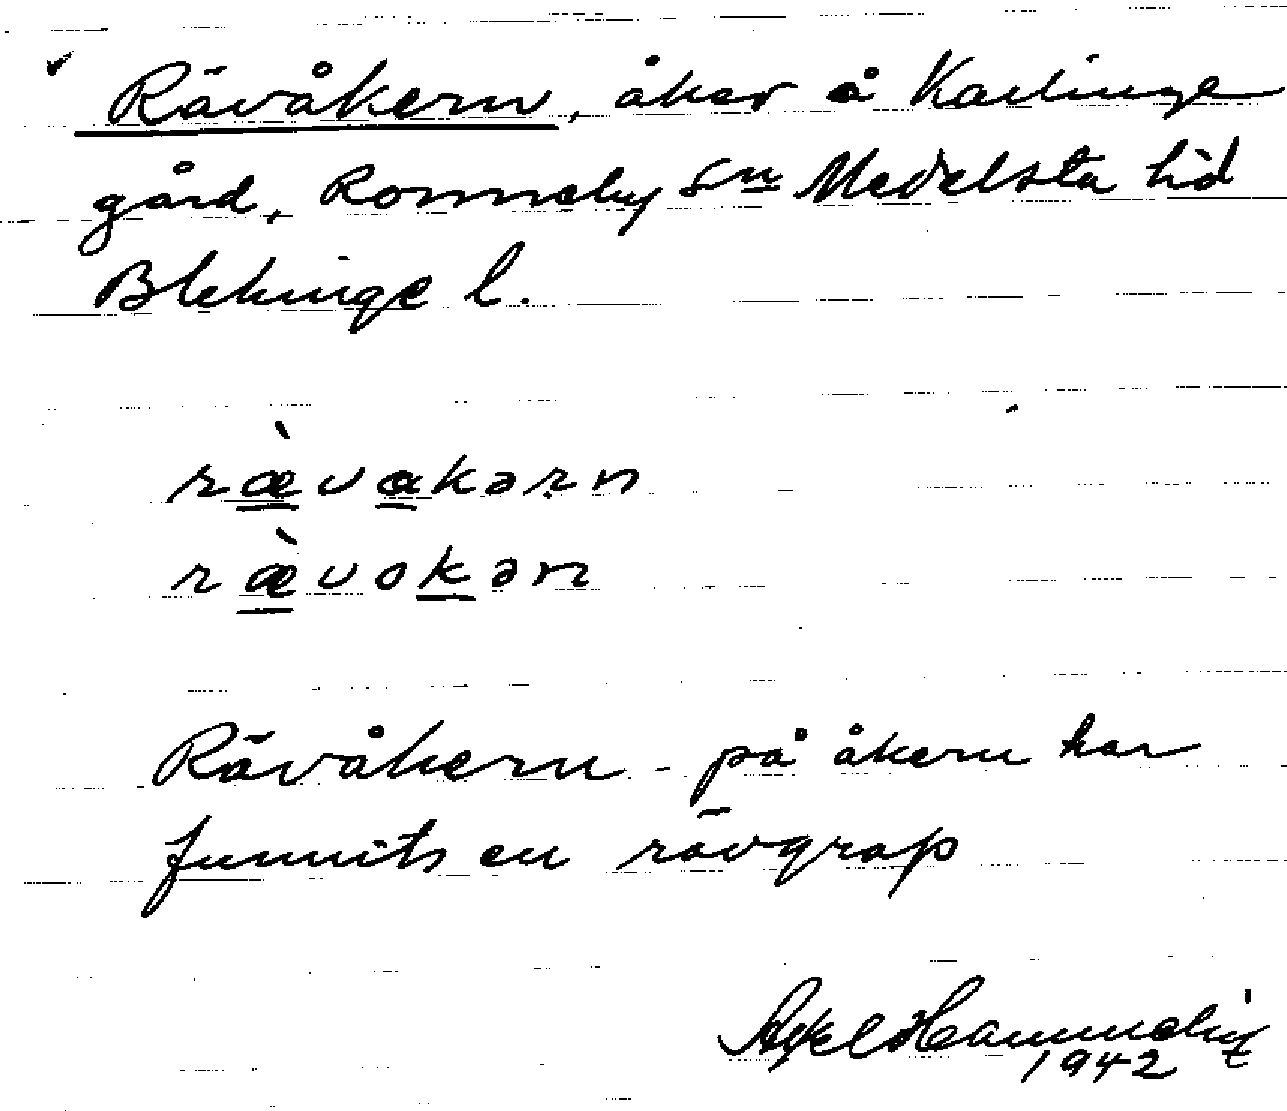 Rävåkern, åker å Kallinge
gård, Ronneby sn Medelsta hd
Blekinge l.
rævakərn
rævokən
Rävåkern - på åkern har
funnits en rävgrop
Axel
1942